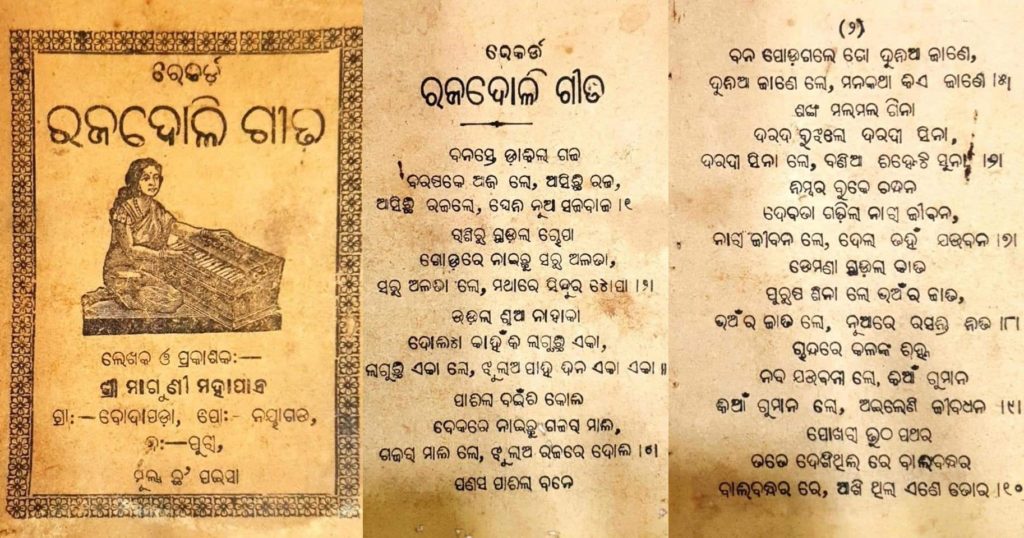 ରେକର୍ଡ
ରଜଦୋଳି ଗୀତ
ଲେଖକ ଓ ପ୍ରକାଶକ:—
ଶ୍ରୀ ମାଗୁଣୀ ମହାପାତ୍ର
ଗ୍ରା:— ପୋ:- ନୟାଗଡ,
ଜି:—ପୁରୀ,
ମୂଲ୍ୟ ଛଅ ପଇସା
ରେକର୍ଡ
ରଜଦୋଳି ଗୀତ
ବନସ୍ତେ ଡାକିଲା ଗଜ
ବରଷକେ ଅଛି ଲୋ, ଆସିଛି ରଜ,
ଆସିଛି ରଜଲୋ, ଘେନି ନୂଆ ସଜବାଜ ।୧
ଛଡ଼ଲା
ଗୋଡ଼ରେ ନାଇଛୁ ସରୁ ଅଳତା,
ସରୁ ଅଳତା ଲୋ, ମଥାରେ ସିନ୍ଦୁର ଟୋପା ।୨।
ଉଡ଼ିଲା ଶୁଆ
ଦୋଳିଟା କାହିଁକି ଲାଗୁଛି ଏକା,
ଲାଗୁଛି ଏକା ଲୋ, ଏକା ଏକା॥
ପାଚିଲା ବଇଁଚି କୋଳି
ବେକରେ ନାଇଛୁ ଗଜରା ମାଳି,
ଗଜରା ମାଳି ଲୋ, ଝୁଲୁଅ ରଜରେ ଦୋଳି ।୪।
ପଣସ ପାଚିଲା ବନେ
(୨)
ବନ ପୋଡ଼ିଗଲେ ଗୋ ଦୁନିଆ ଜାଣେ,
ଦୁନିଆ ଜାଣେ ଲୋ, ମନକଥା କିଏ ଜାଣେ ।୫।
ମଲମଲ ଗିନା
ଦରଦ ବୁଝିଲେ ଦରଦୀ ସିନା,
ଦରଦୀ ସିନା ଲୋ, ବଣିଆ ସୁନା ।୬।
ଚନ୍ଦନ
ଦେବତା ଗଢ଼ିଲା ନାରୀ ଜୀବନ,
ନାରୀ ଜୀବନ ଲୋ, ଦେଲା ତହିଁ ଯଉବନ ।୭।
ଡେମଣା ଛାଡ଼ିଲା କାତି
ପୁରୁଷ ସିନା ଲୋ ଭଅଁର ଜାତି,
ଭଅଁର ଜାତି ଲୋ, ନୂଆରେ ରସନ୍ତି ନିତି ।୮।
ଚାନ୍ଦରେ କଳଙ୍କ ଚିହ୍ନ
ନବ ଯଉବନୀ ଲୋ, କିଆଁ ଗୁମାନ
କିଆଁ ଗୁମାନ ଲୋ, ଜୀବଧନ ।୯।
ପୋଖରୀ ତୁଠ ପଥର
ତତେ ଦେଖିଥିଲି ରେ ବାଲବନ୍ଧର
ବାଲବନ୍ଧର ରେ, ଆଖି ଥିଲା ଏଣେ ତୋର ।୧୦